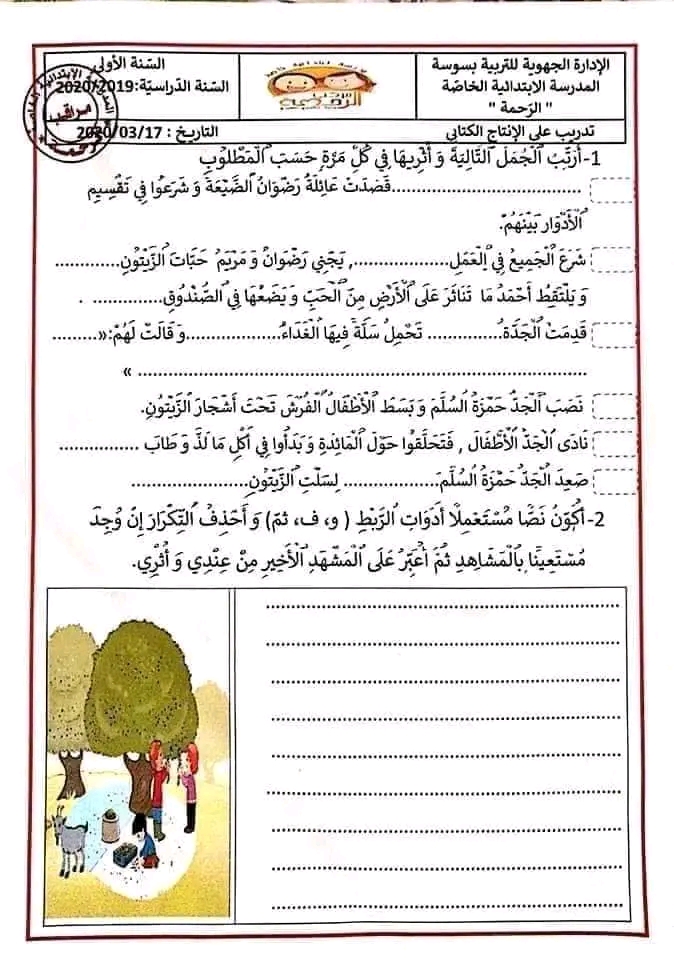 الإدارة الجهوية للتربية بسوسة
المدرسة الابتدائية الخاصّة
" الرّحمة "
السّنة الأولى
السّنة الدّراسيّة:2020/2019
مراقب
تدريب على الإنتاج الكتابي
التاريخ : 2020/03/17
1-أُرَتِّبُ الْجُمَلَ التَّالِيَةَ وَ أُثْرِيهَا فِي كُلِّ مَرَّةٍ حَسَبَ الْمَطْلُوبِ
..................................قَصَدَتْ عَائِلَةُ رَضْوَانُ الضَّيْعَةَ وَ شَرَعُوا فِي تَقْسِيمِ
الْأَدْوَارِ بَيْنَهُمْ.
شَرَعَ الْجَمِيعُ فِي الْعَمَلِ................., يَجْنِي رَضْوَانُ وَ مَرْيَمُ حَبَّاتَ الزَّيْتُونِ............
وَ يَلْتَقِطُ أَحْمَدُ مَا تَنَاثَرَ عَلَى الْأَرْضِ مِنَ الْحَبِّ وَ يَضَعُهَا فِي الصُّنْدُوقِ............. .
قَدِمَتْ الْجَدَّةُ.............. تَحْمِلُ سَلَّةً فِيهَا الْغَدَاءُ.................وَ قَالَتْ لَهُمْ:«.........
.................................................................................. »
نَصَبَ الْجَدُّ حَمْزَةُ السُّلَّمَ وَ بَسَطَ الْأَطْفَالُ الْفُرُشَ تَحْتَ أَشْجَارِ الزَّيْتُونِ.
نَادَى الْجَدُّ الْأَطْفَالَ , فَتَحَلَّقُوا حَوْلَ الْمَائِدَةِ وَ بَدَأُوا فِي أَكْلِ مَا لَذَّ وَ طَابَ ...............
صَعِدَ الْجَدُّ حَمْزَةُ السُّلَّمَ.................. لِسَلْتِ الزَّيْتُونِ.....................
2-أُكَوِّنُ نَصًّا مُسْتَعْمِلًا أَدَوَاتِ الرَّبْطِ ( و، ف، ثمّ) وَ أَحْذِفُ التِّكْرَارَ إِنْ وُجِدَ
مُسْتَعِينًا بِالْمَشَاهِدِ ثُمَّ أُعَبِّرُ عَلَى الْمَشْهَدِ الْأَخِيرِ مِنْ عِنْدِي وَ أُثْرِي.